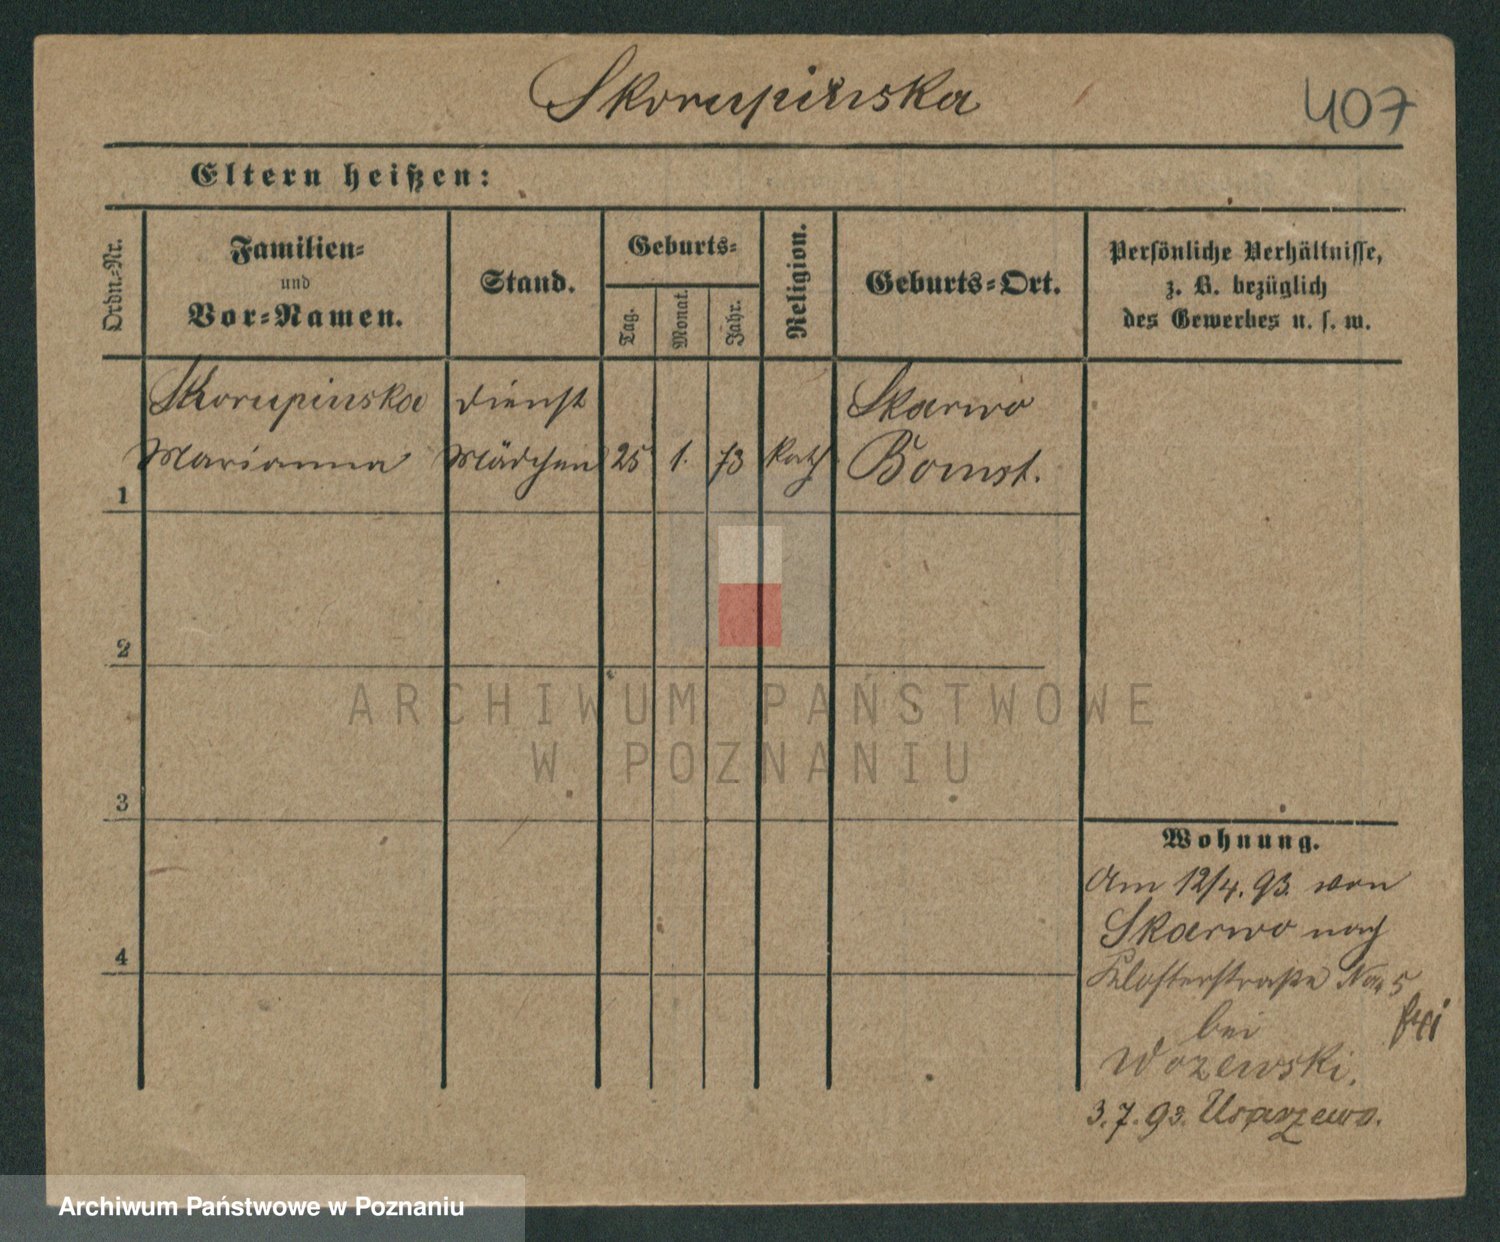 Skorupińska
407
Eltern heißen:
Ordn.-Nr.
Familien-
und
Vor-Namen.
Stand.
Geburts-
Tag.
Monat.
Jahr.
Religion.
Geburts-Ort.
Persönliche Verhältnisse,
z. B. bezüglich
des Gewerbes u. s. w.
Skorupinska dienst Skarwo
Marianna Mädchen 25 1. 73 kath Bomst.
1
2
ARCHIWUM PAŃSTWOWE
W POZNANIU
3
Wohnung.
Am 12/4. 93. von
Skarwo nach
4
Klosterstraße No 5
bei
Wozewski.
3.7.93.
Archiwum Państwowe w Poznaniu